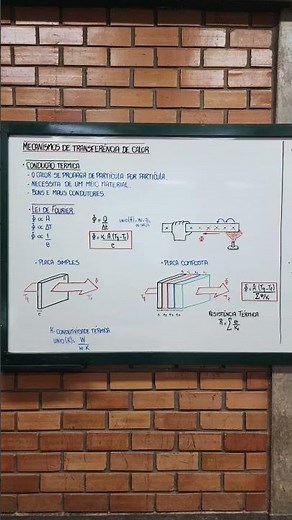 MECANISMOS DE TRANSFERÊNCIA DE CALOR
• CONDUÇÃO TÉRMICA
- O CALOR SE PROPAGA DE PARTÍCULA POR PARTÍCULA.
- NECESSITA DE UM MEIO MATERIAL
- BONS E MAUS CONDUTORES
• LEI DE FOURIER
Φ ∝ A
Φ ∝ ΔT
Φ ∝ 1/e
Φ = Q/Δt
Φ = K A (T₂-T₁)/e
• PLACA SIMPLES
• PLACA COMPOSTA
Φ = A (T₂-T₁)/Σe/K
RESISTÊNCIA TÉRMICA
R = Σ e/K
K: CONDUTIVIDADE TÉRMICA
UNID(K) = W/m K